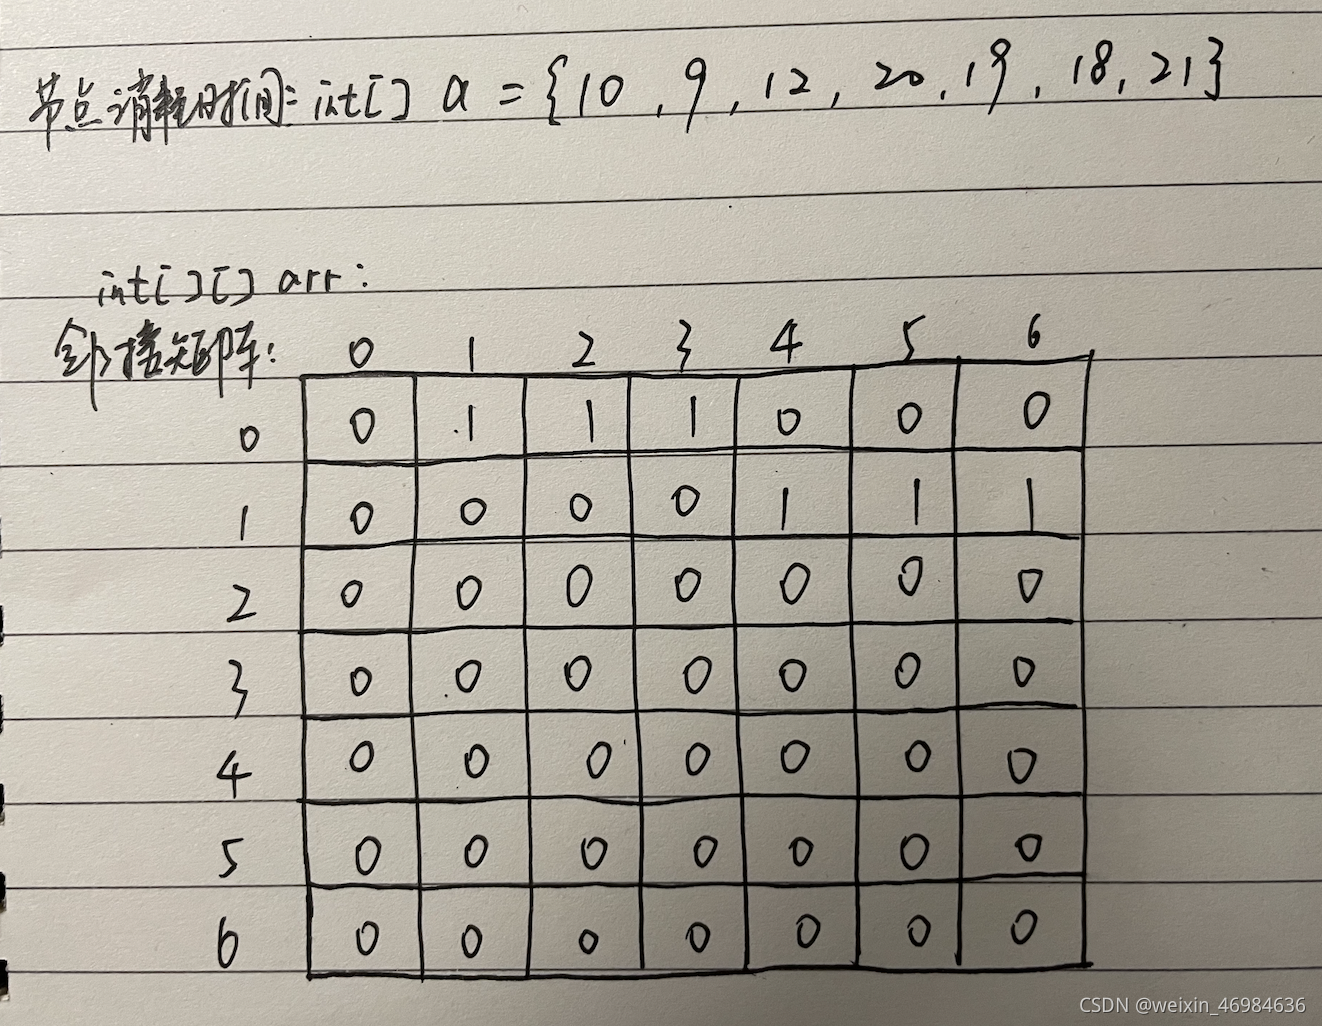 节点消耗时间: int[] a = {10, 9, 12, 20, 19, 18, 21}
int[][] arr:
邻接矩阵: 0 1 2 3 4 5 6
0 0 1 1 1 0 0 0
1 0 0 0 0 1 1 1
2 0 0 0 0 0 0 0
3 0 0 0 0 0 0 0
4 0 0 0 0 0 0 0
5 0 0 0 0 0 0 0
6 0 0 0 0 0 0 0
CSDN @weixin_46984636